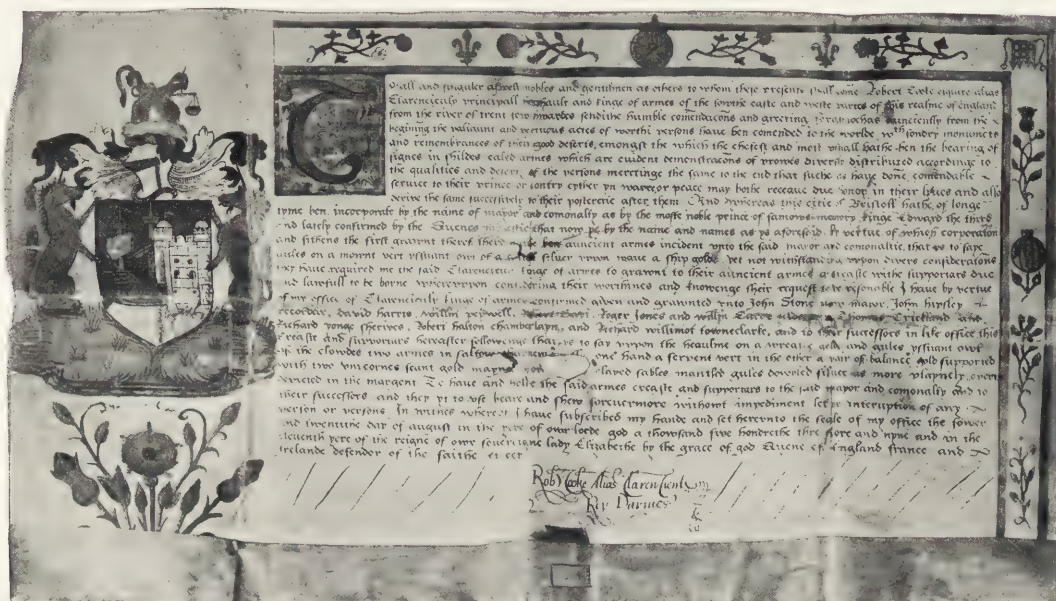 To all and singuler aswell nobles and gentilmen as others to whom these presents shall come Robert Cooke esquire alias
Clarencieulx principall herhault and kinge of armes of the sowthe easte and weste partes of this realme of england
from the river of trent sowthwardes sendithe humble comendacons and greeting forasmuchas aunciently from the
begining the valiaunt and vertuous actes of worthi persons have ben comended to the worlde with sondry monuments
and remembrances of their good deserts, emongst the which the chefest and most usuall hathe ben the bearing of
signes in shildes caled armes which are evident demonstracons of prowes diversly distributed accordinge to
the qualities and deserts of the persons meritinge the same to the end that suche as have done comendable
service to their prince or contry eyther yn warre or peace may bothe receave due honor in their lives and also
derive the same successively to their posteritie after them And whereas this citie of Bristoll hathe of longe
tyme ben incorporate by the name of mayor and comonalty as by the moste noble prince of famous memory kinge Edward the third
and lately confirmed by the Quenes majestie that now ys by the name and names as ys aforesaid. By vertue of which corporation
and sithens the first graunt therof there hathe ben auncient armes incident unto the said mayor and comonaltie, that ys to saye
gules on a mount vert yssuant out of a silver uppon wave a ship golde. yet not withstanding uppon divers consideratons
they have required me the said Clarencieulx kinge of armes to graunt to their auncient armes a creaste withe supportars due
and lawfull to be borne whereuppon considering their worthines and knowenge their request to be resonable I have by vertue
of my office of Clarencieulx kinge of armes confirmed given and graunted unto John Stone now mayor, John hipsley
recorder, david harris, william pepwell, Roger Jones and william Carre Thomas Crickland and
Richard yonge sherives, Robert halton chamberlayn, and Richard willimot towneclarke, and to their successors in like office this
Creaste and supportars hereafter followenge that ys to say uppon the heaulme on a wreathe gold and gules yssuant out
of the clowdes two armes in saltour one hand a serpent vert in the other a pair of balance gold supported
with two unicornes seant gold mayned and clayed sables mantled gules dowbled silver as more playnely
depicted in the margent To have and holde the said armes creaste and supportars to the said mayor and comonalty and to
their successors and they yt to use beare and shew forevermore without impediment let or interuption of any
person or persons. In witnes whereof I have subscribed my hande and set hereunto the seale of my office the fower
and twentithe day of august in the yere of owr lorde god a thousand five hondrethe thre skore and nyne and in the
eleventh yere of the reigne of owr sovereigne lady Elizabethe by the grace of god Quene of england france and
Irelande defender of the faithe et cet
Rob Cooke Alias Clarencieulx
Roy Darmes